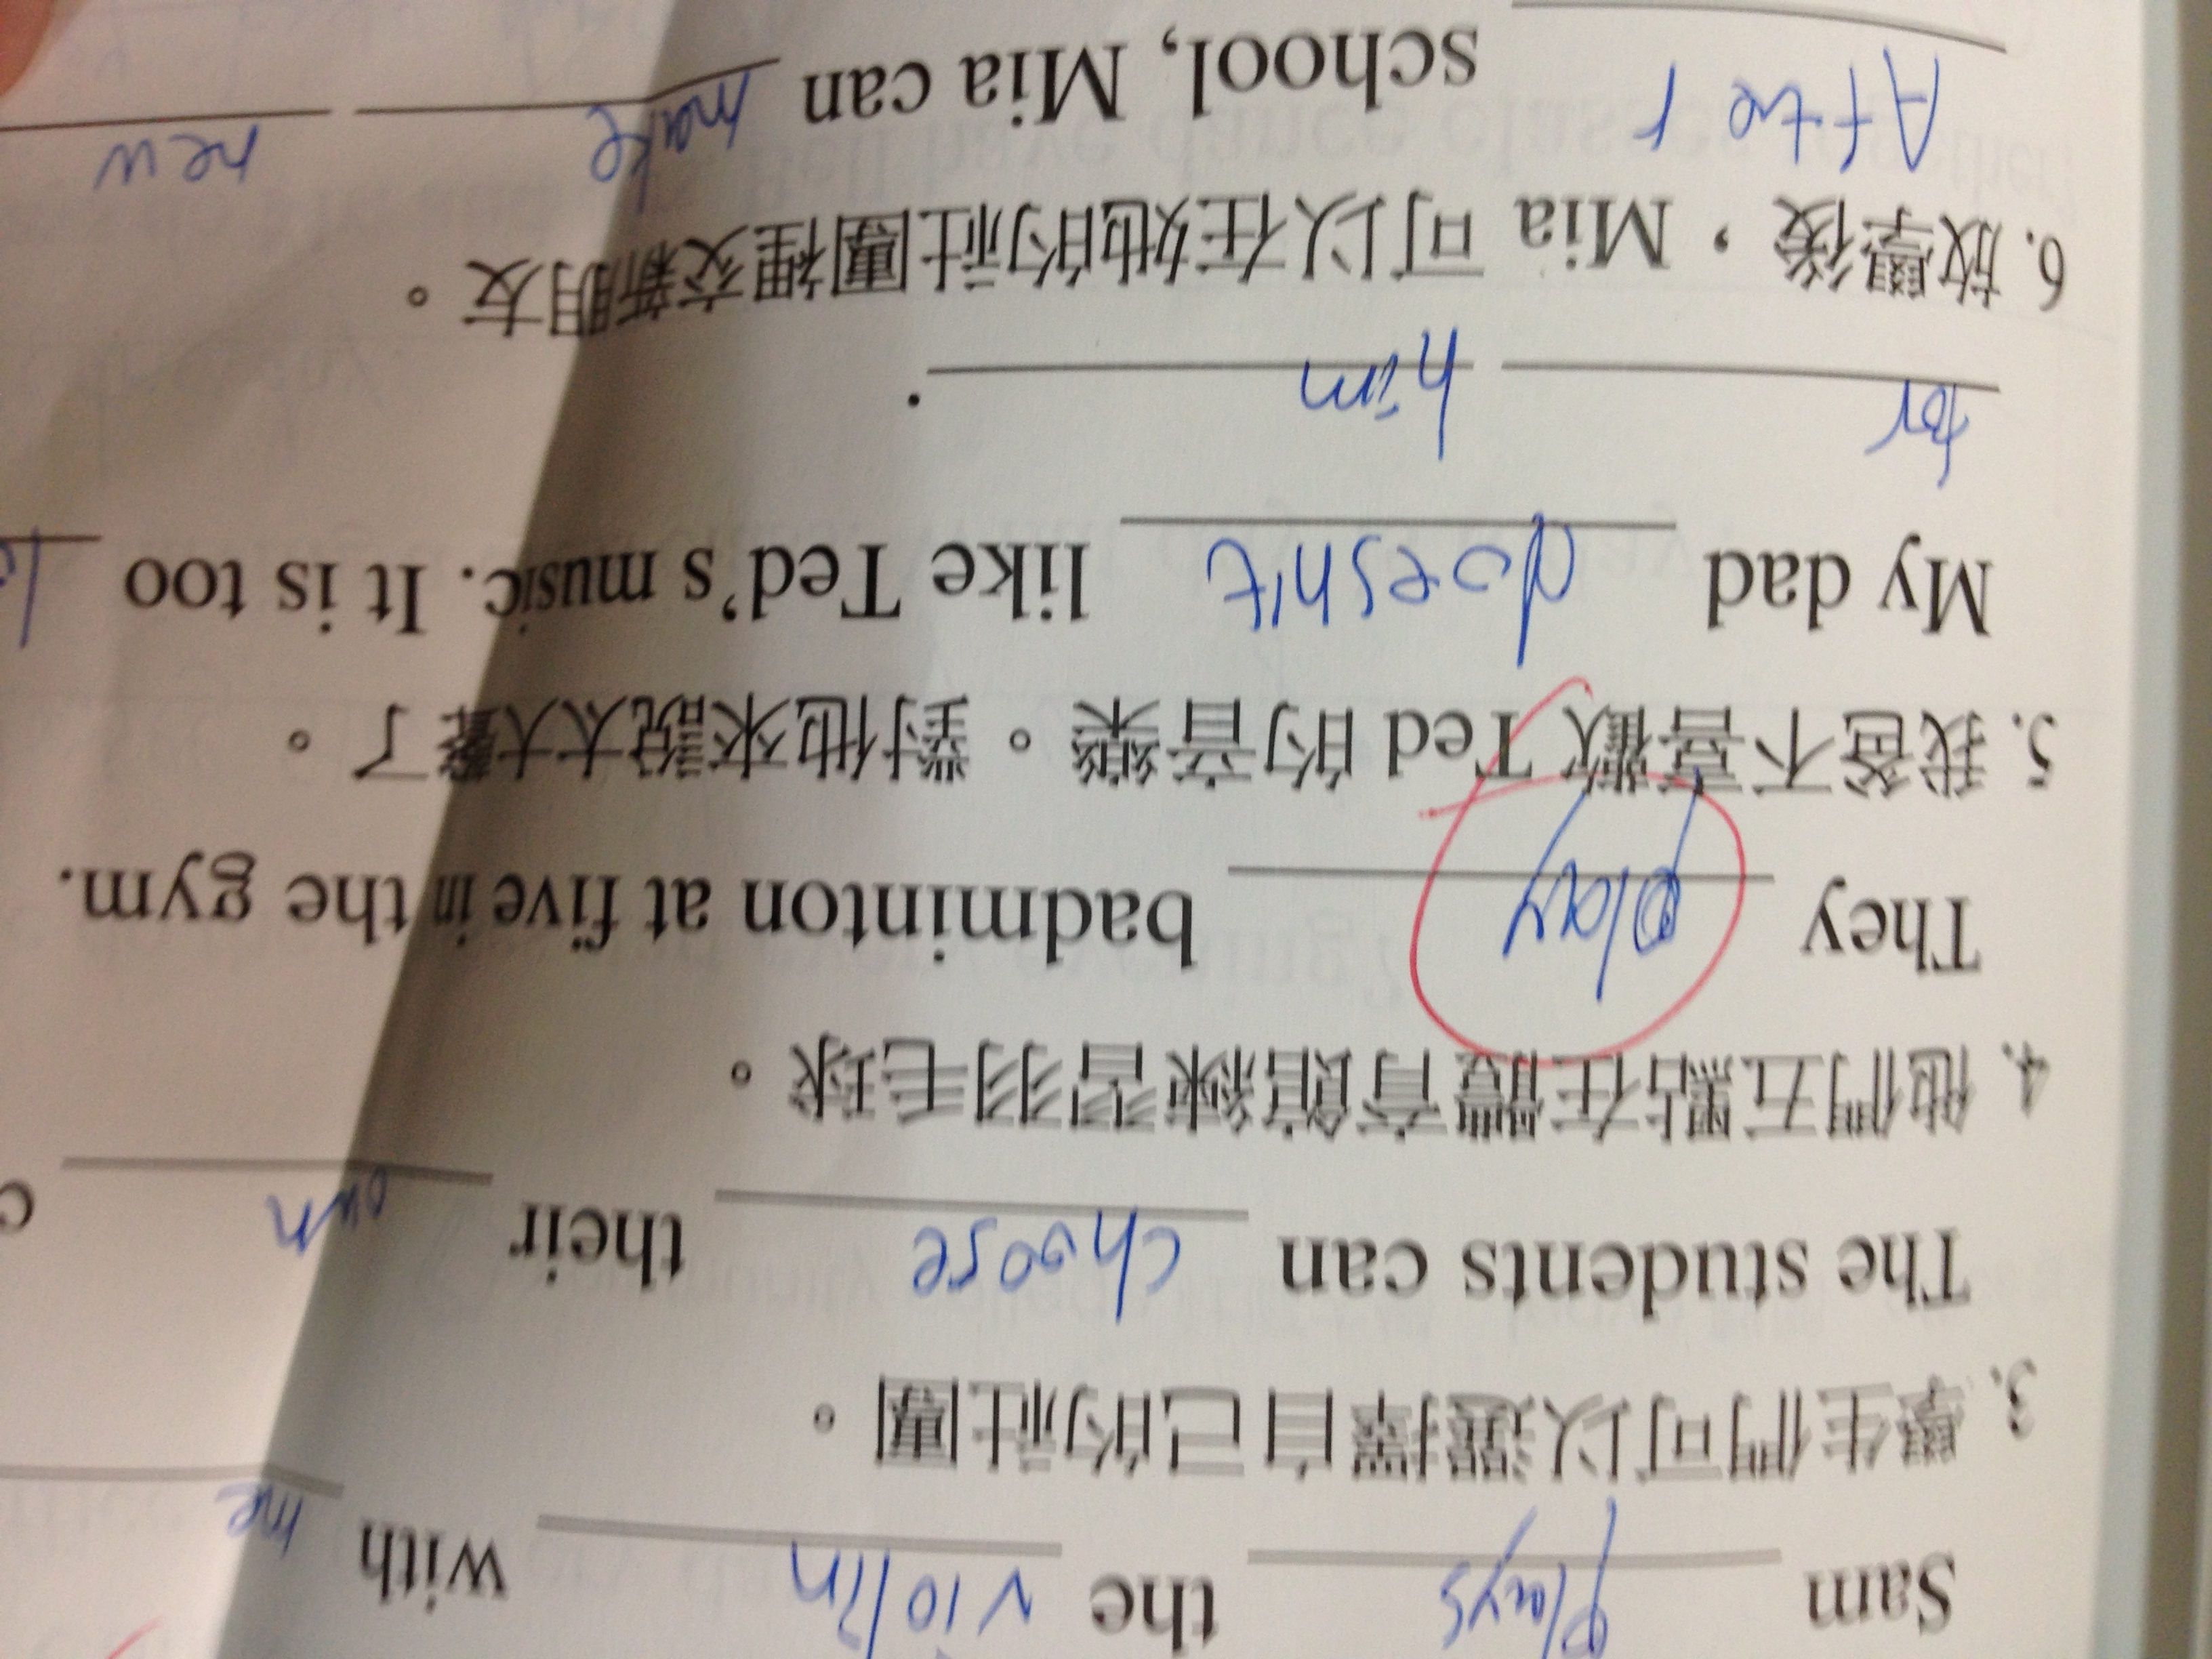 Sam plays the violin with me
3. 學生們可以選擇自己的社團。
The students can choose their own c
4. 他們五點在體育館練習羽毛球。
They play badminton at five in the gym.
5. 我爸不喜歡 Ted 的音樂。對他來說太大聲了。
My dad doesn't like Ted's music. It is too
for him.
6. 放學後,Mia 可以在她的社團裡交新朋友。
After school, Mia can make new